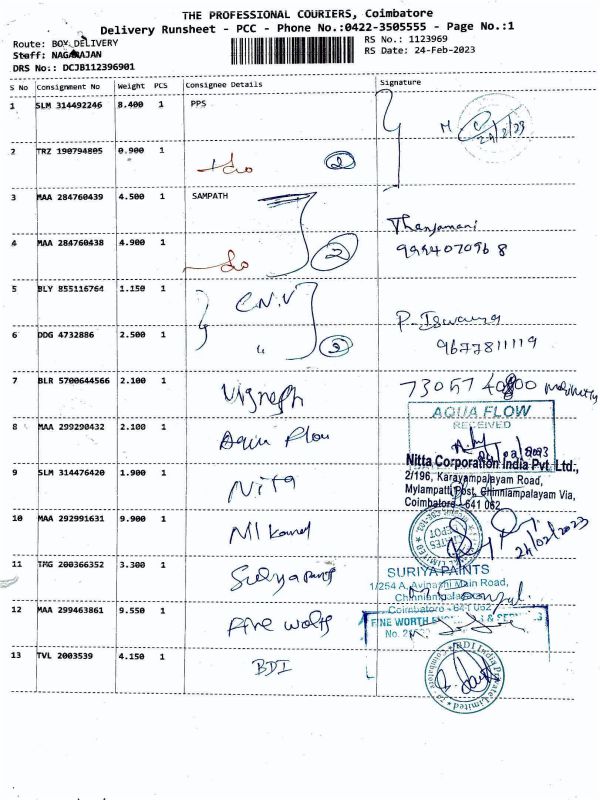 THE PROFESSIONAL COURIERS, Coimbatore
Delivery Runsheet - PCC - Phone No.:0422-3505555 - Page No.:1
Route: BOY DELIVERY
RS No.: 1123969
Staff: NAGARAJAN
RS Date: 24-Feb-2023
DRS No.: DCJB112396901
S No Consignment No Weight PCS Consignee Details Signature
1 SLM 314492246 8.400 1 PPS
24/2/23
2 TRZ 190794805 0.900 1
do 2
3 MAA 284760439 4.500 1 SAMPATH
Thenjamani
4 MAA 284760438 4.900 1
do 2 9994070968
5 BLY 855116764 1.150 1 C.N.V
P. Iswarya
6 DDG 4732886 2.500 1 "
9677811119
7 BLR 5700644566 2.100 1 Vignesh
AQUA FLOW
RECEIVED
8 MAA 299290432 2.100 1
Nitta Corporation India Pvt. Ltd.,
2/196, Karayampalayam Road,
9 SLM 314476420 1.900 1 Nita
Mylampatti Post, Chinniampalayam Via,
Coimbatore - 641 062
10 MAA 292991631 9.900 1
24/02/2023
11 TMG 200366352 3.300 1 Suriya Paints
SURIYA PAINTS
1/254 A, Avinashi Main Road,
Chinniampalayam
Coimbatore - 641 062
12 MAA 299463861 9.550 1 Fine Worth
FINE WORTH
No. 2
13 TVL 2003539 4.150 1 BDI
BDI India Private Limited
Coimbatore